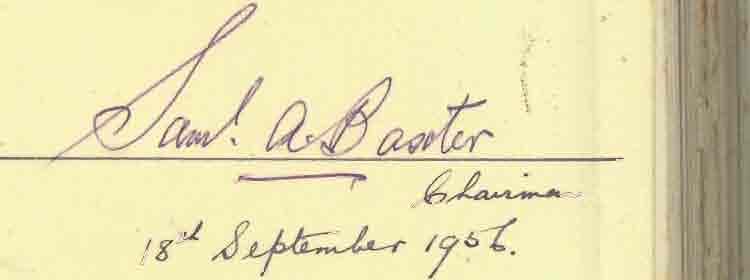 Saml. A. Baxter
Chairman
18th September 1956.